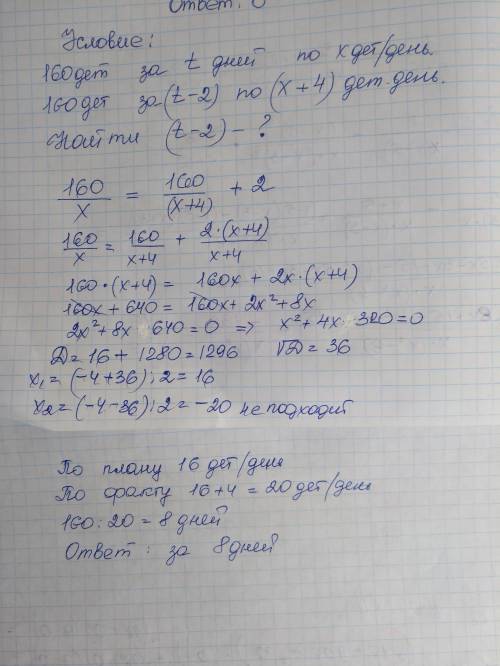 Ответ: 0
Условие:
160 дет за t дней по x дет/день.
160 дет за (t-2) по (x+4) дет. день.
Найти (t-2) - ?
160/x = 160/(x+4) + 2
160/x = 160/x+4 + 2·(x+4)/x+4
160·(x+4) = 160x + 2x·(x+4)
160x + 640 = 160x + 2x²+8x
2x²+8x 640=0 => x²+4x 320=0
D=16+1280=1296 √D=36
x₁=(-4+36):2=16
x₂=(-4-36):2=-20 не подходит
По плану 16 дет/день
По факту 16+4=20 дет/день
160:20=8 дней
Ответ: за 8 дней